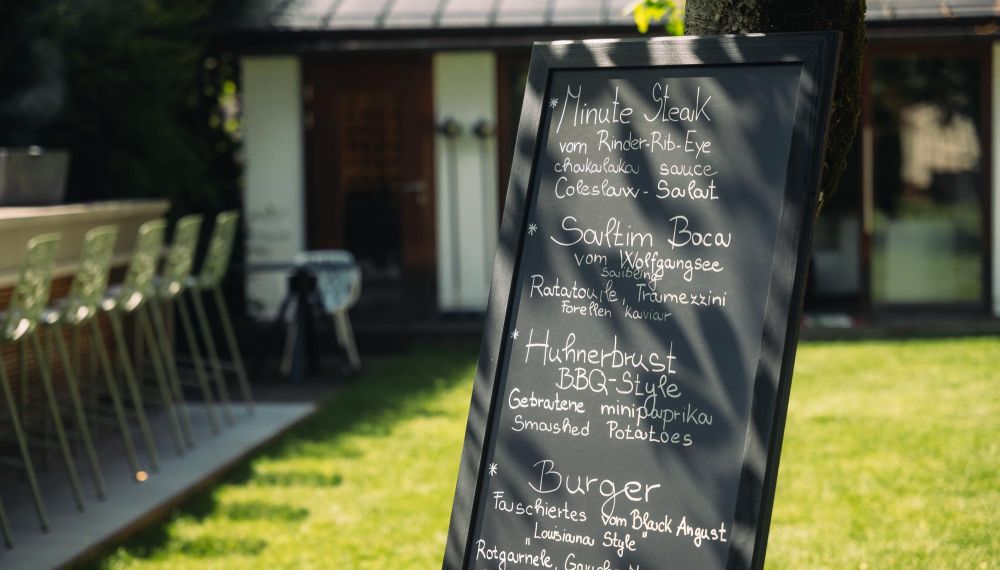 * Minute Steak
vom Rinder-Rib-Eye
chakalaka sauce
Coleslaw-Salat
* Saltim Boca
vom Wolfgangsee
saibling
Ratatouile, Tramezzini
Forellen kaviar
* Huhnerbrust
BBQ-Style
Gebratene minipaprika
Smashed Potatoes
* Burger
Faschiertes vom Black Angust
"Louisiana Style"
Rotgarnele,